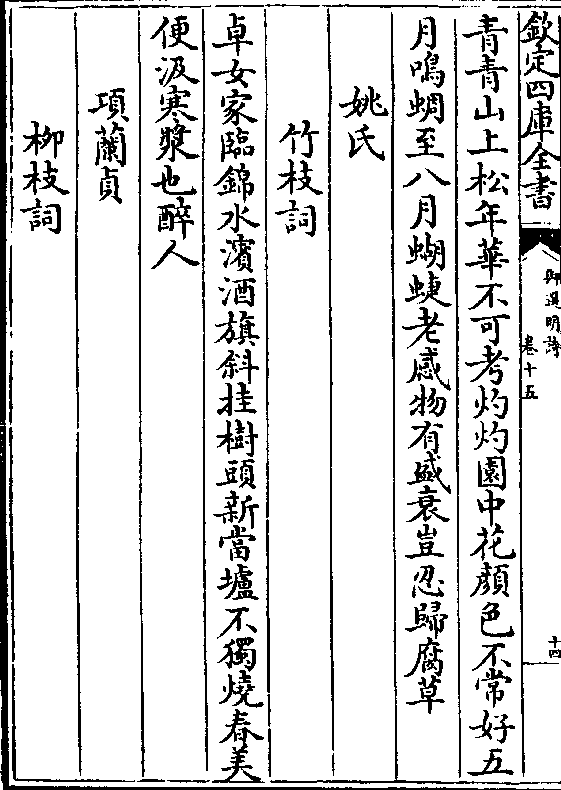 欽定四庫全書
御選明詩
卷十五
十四
青青山上松年華不可考灼灼園中花顏色不常好五
月鳴蜩至八月蝴蜨老感物有盛衰豈忍歸腐草
姚氏
竹枝詞
卓女家臨錦水濱酒旗斜挂樹頭新當壚不獨燒春美
便汲寒漿也醉人
項蘭貞
柳枝詞